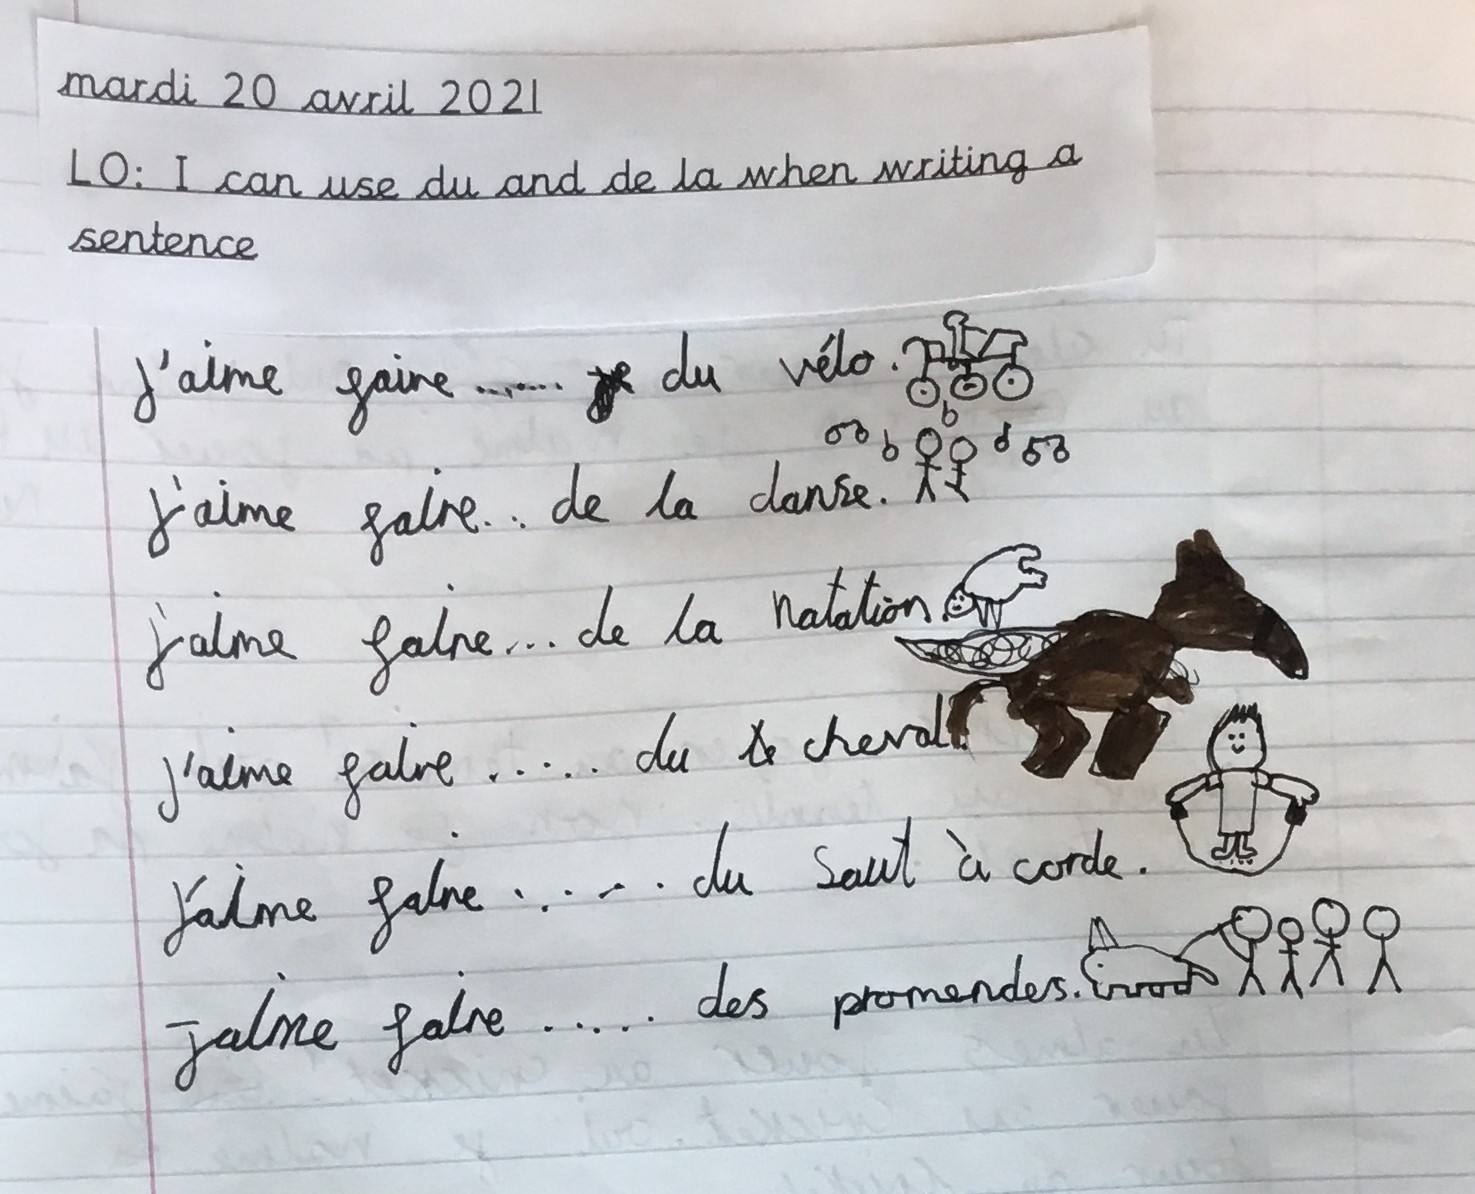 mardi 20 avril 2021
LO: I can use du and de la when writing a
sentence
j'aime faire ....... du vélo.
j'aime faire... de la danse.
j'aime faire... de la natation.
j'aime faire ...... du cheval.
j'aime faire ..... du saut à corde.
j'aime faire ..... des promendes.